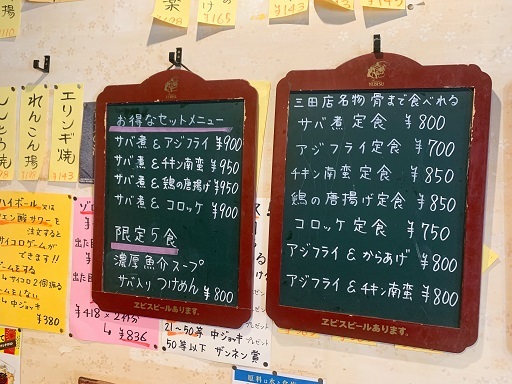 ¥178
け
¥165
¥143
¥143
揚
れんこん揚
エリンギ焼
¥143
YEBISU
お得なセットメニュー
サバ煮 & アジフライ ¥900
サバ煮 & チキン南蛮 ¥950
サバ煮 & 鶏の唐揚げ ¥950
サバ煮 & コロッケ ¥900
限定5食
濃厚魚介スープ
サバ入り つけめん ¥800
ヱビスビールあります。
YEBISU
三田店名物 骨まで食べれる
サバ煮 定食 ¥800
アジフライ定食 ¥700
チキン南蛮定食 ¥850
鶏の唐揚げ定食 ¥850
コロッケ定食 ¥750
アジフライ & からあげ ¥800
アジフライ & チキン南蛮 ¥800
ヱビスビールあります。
ハイボール 又は
サワーを
注文すると
サイコロゲームが
できます!!
ゲームをする
サイコロ2個振る
中ジョッキ
¥380
出た目
¥418
¥836
プレゼント
21～50等 中ジョッキ プレゼント
50等以下 ザンネン賞